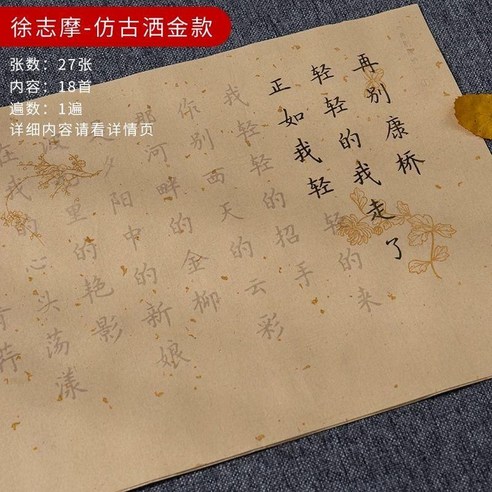 徐志摩-仿古洒金款
张数：27张
内容：18首
遍数：1遍
详细内容请看详情页
再别康桥
轻轻的我走了
正如我轻轻的来
我轻轻的招手
作别西天的云彩
那河畔的金柳
夕阳中的新娘
里的艳影
在我的心头荡漾
青荇